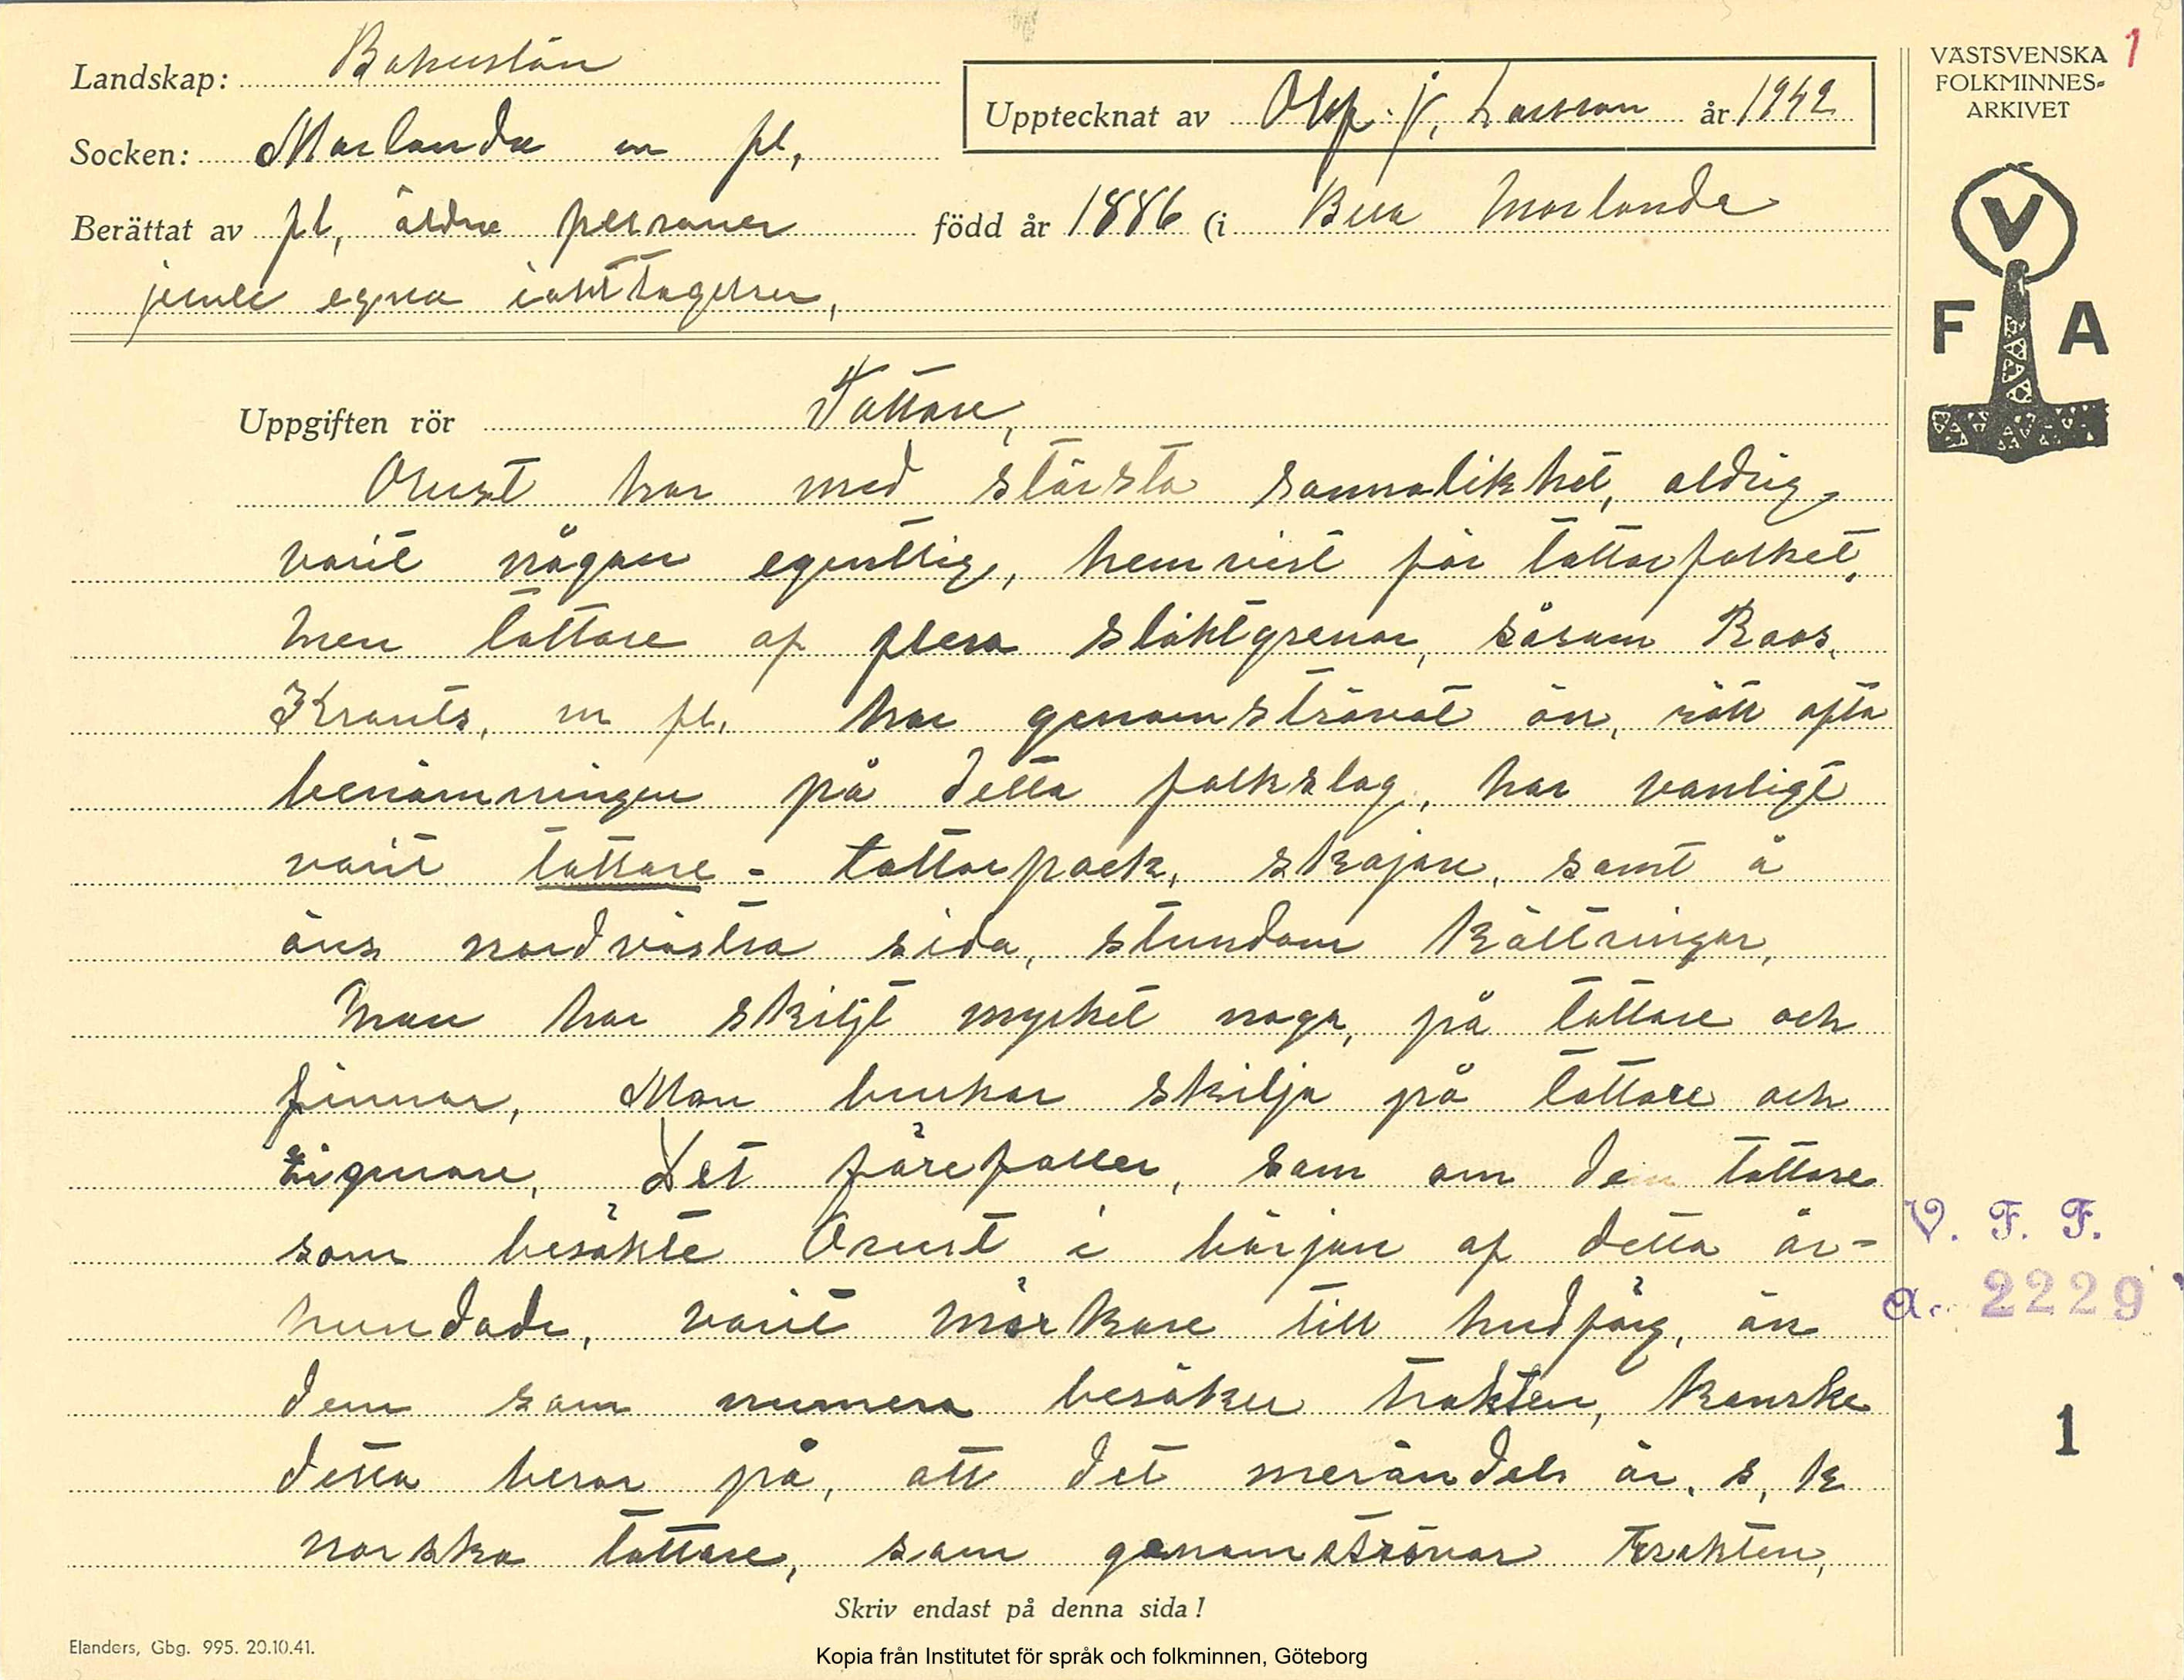 Landskap: Bohuslän
Socken: Morlanda m fl,
Upptecknat av Olof. J. Larsson år 1942
Berättat av fl, äldre personer född år 1886 (i Bua Morlanda
jemte egna iakttagelser,
VÄSTSVENSKA 1
FOLKMINNES-
ARKIVET
V
F A
Uppgiften rör Tattare,
Orust har med största sannolikhet, aldrig
varit någon egentlig, hemvist för tattarfolket,
Men tattare af flera släktgrenar, såsom Roos,
Krants, m fl. har genomströvat ön, rätt ofta
benämningen på detta folkslag, har vanligt
varit tattare - tattarpack, skojare, samt å
öns nordvästra sida, stundom Kältringar,
Man har skiljt mycket noga, på tattare och
finnar, Man brukar skilja på tattare och
Zigenare, Det förefaller, som om de tattare
som besökte Orust i början af detta år-
hundade, varit mörkare till hudfärg, än
dem som numera besöker trakten, kanske
detta beror på, att det merändels är, s, k
norska tattare, som genomströvar trakten,
V. F. F.
Ac. 2229
1
Skriv endast på denna sida!
Elanders, Gbg. 995. 20.10.41.
Kopia från Institutet för språk och folkminnen, Göteborg